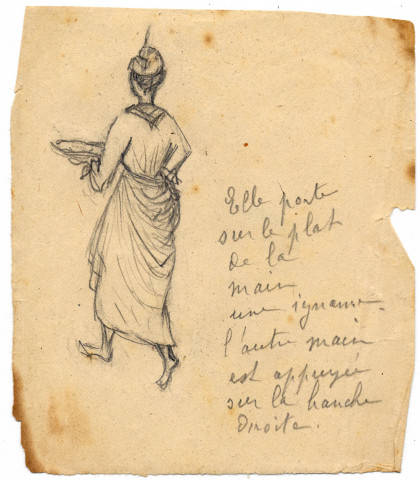 Elle porte
sur le plat
de la
main
une igname.
l'autre main
est appuyée
sur la hanche
droite.